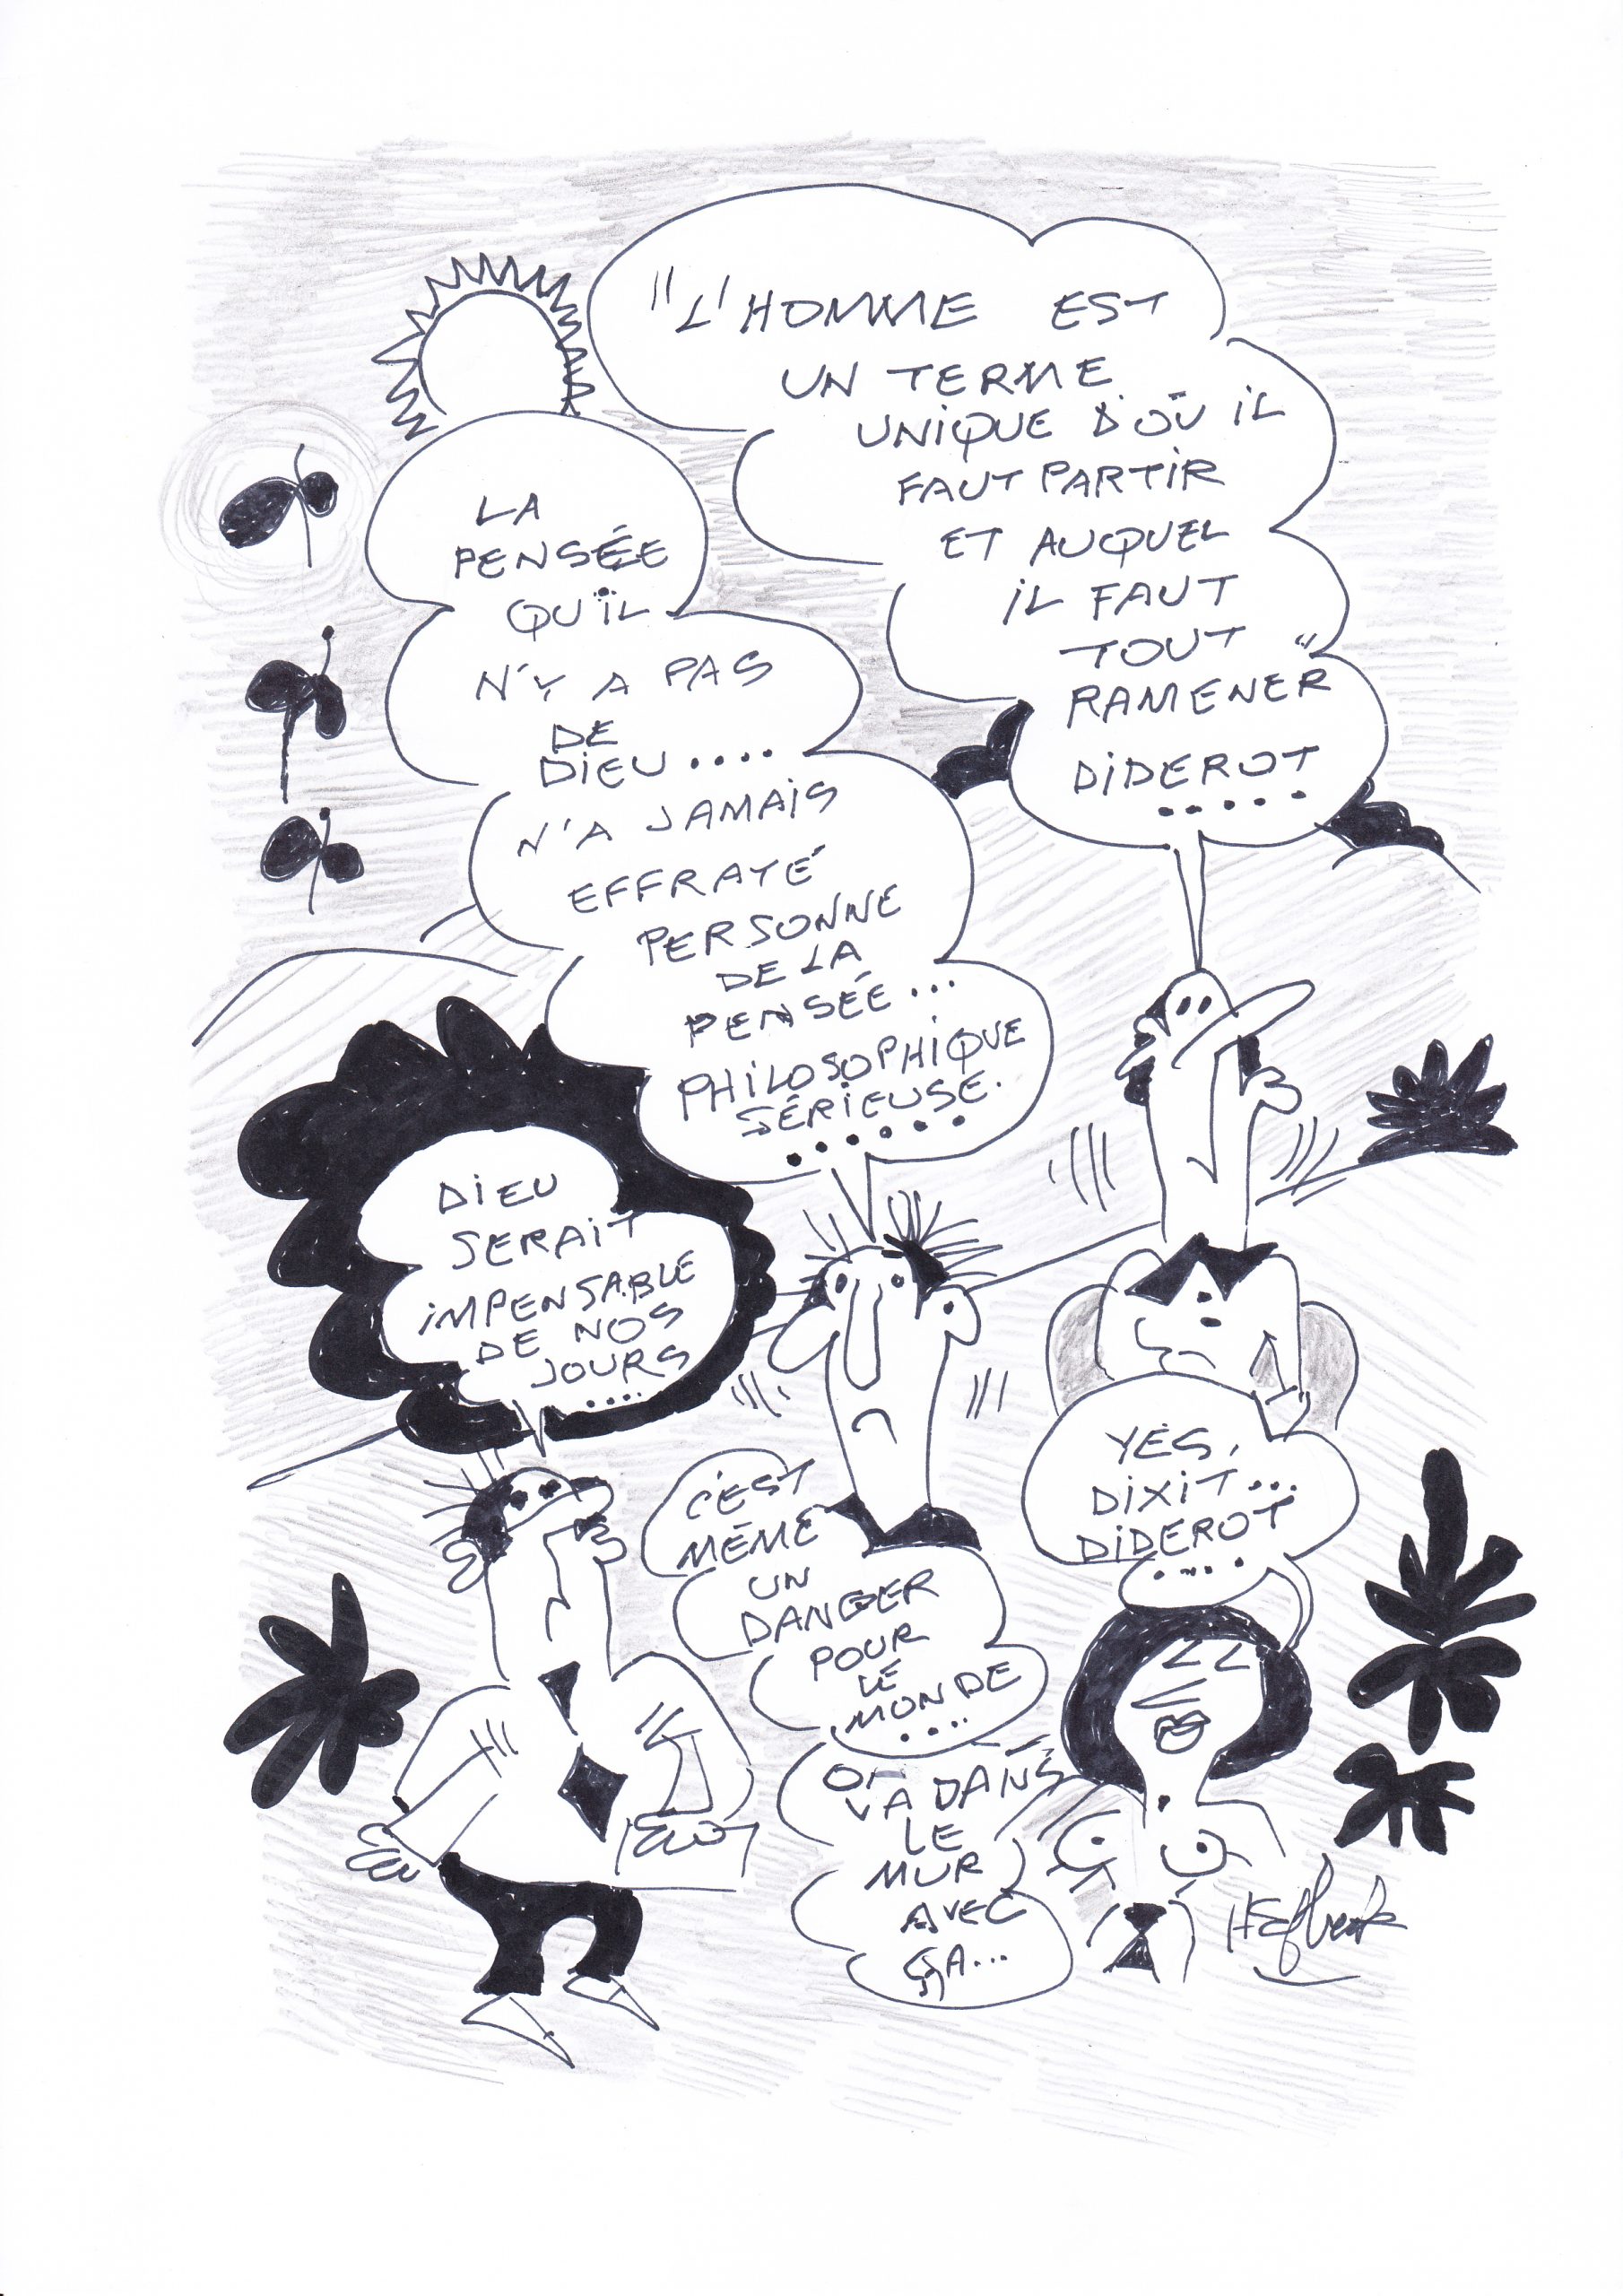 "L'HOMME EST
UN TERME
UNIQUE D'OÙ IL
FAUT PARTIR
ET AUQUEL
IL FAUT
TOUT
RAMENER"
DIDEROT
.....
LA
PENSÉE
QU'IL
N'Y A PAS
DE
DIEU....
N'A JAMAIS
EFFRAYÉ
PERSONNE
DE LA
PENSÉE...
PHILOSOPHIQUE
SÉRIEUSE.
......
DIEU
SERAIT
IMPENSABLE
DE NOS
JOURS
....
C'EST
MÊME
UN
DANGER
POUR
LE
MONDE
....
ON
VA DANS
LE
MUR
AVEC
ÇA...
YES,
DIXIT...
DIDEROT
....